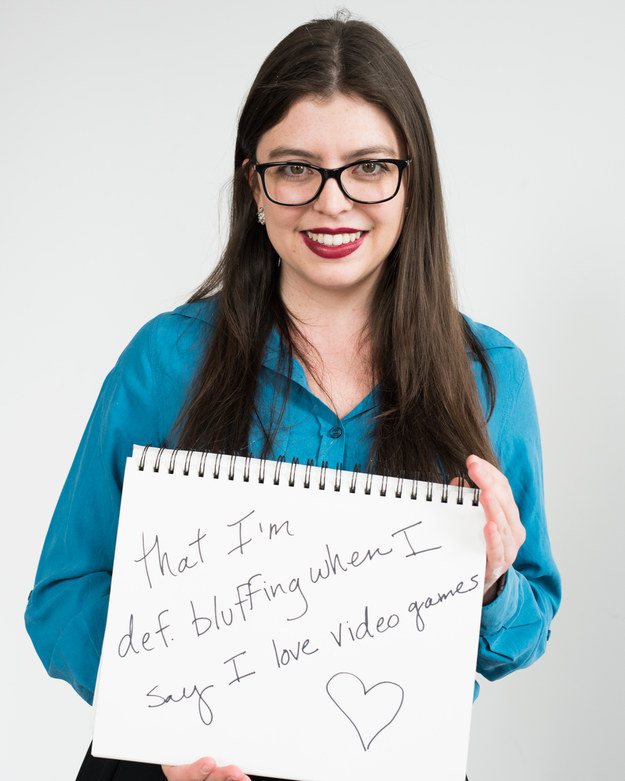 that I'm
def. bluffing when I
say I love video games